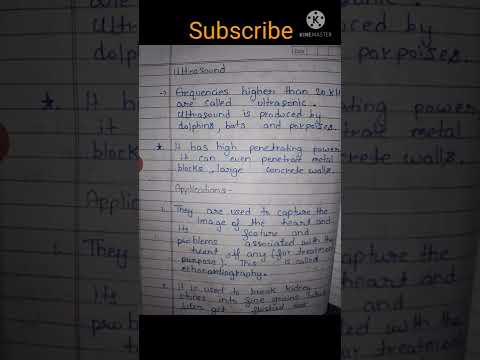 Subscribe
KINEMASTER
Ultrasound
→ Frequencies higher than 20 KH
are called ultrasonic.
Ultrasound is produced by
dolphins, bats and porpoises.
* It has high penetrating power
it can even penetrate metal
blocks, large concrete walls.
Applications -
1. They are used to capture the
image of the heart and
its feature and
problems associated with the
treat off any (for treatment
purpose). This is called
echocardiography.
2. It is used to break kidney
stones into fine grains which
later get flushed out